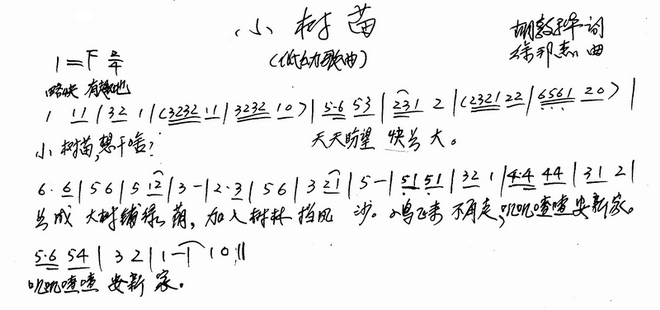 小树苗
(低幼歌曲)
胡敦骅 词
徐邦杰 曲
1=F 2/4
略快 有趣地
1 11 | 32 1 | (3232 11 | 3232 10) | 5·6 53 | 231 2 | (2321 22 | 6561 20) |
小树苗,想干啥? 天天盼望 快长大。
6· 6 | 5 6 | 5 12 | 3 - | 2·3 | 5 6 | 3 21 | 5 - | 51 51 | 32 1 | 4·4 44 | 31 2 |
长成 大树铺绿荫,加入树林 挡风 沙。小鸟飞来 不再走,叽叽喳喳 安新家。
5·6 54 | 3 2 | 1 - | 1 0 ‖
叽叽喳喳 安新 家。